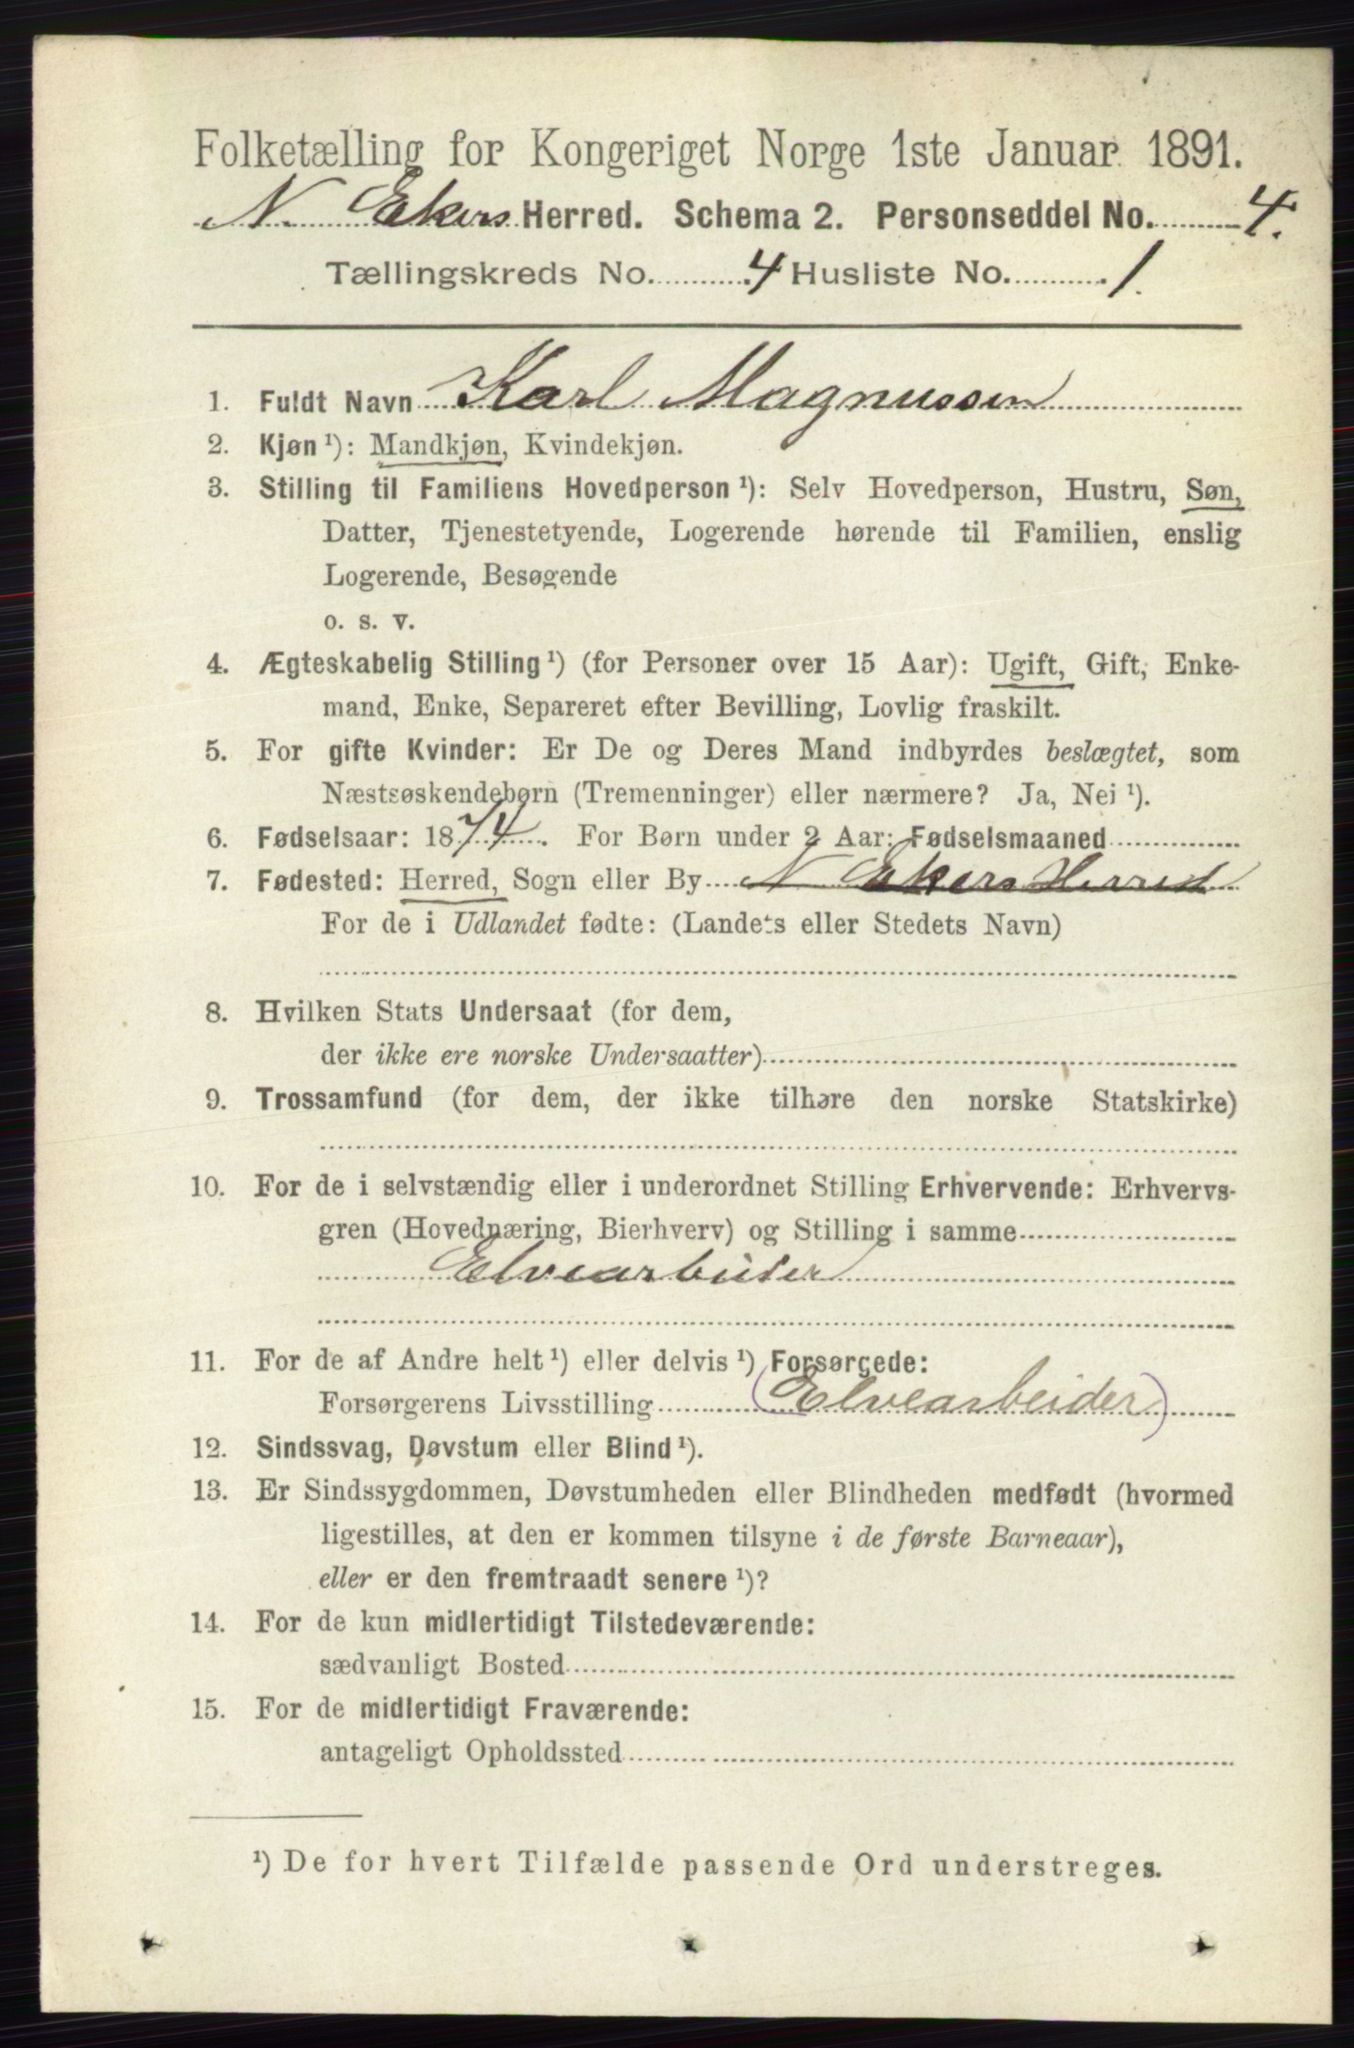 Folketælling for Kongeriget Norge 1ste Januar 1891.
N. Ekers Herred. Schema 2. Personseddel No. 4.
Tællingskreds No. 4 Husliste No. 1.
1. Fuldt Navn Karl Magnussen
2. Kjøn ¹): Mandkjøn, Kvindekjøn.
3. Stilling til Familiens Hovedperson ¹): Selv Hovedperson, Hustru, Søn,
Datter, Tjenestetyende, Logerende hørende til Familien, enslig
Logerende, Besøgende
o. s. v.
4. Ægteskabelig Stilling ¹) (for Personer over 15 Aar): Ugift, Gift, Enke-
mand, Enke, Separeret efter Bevilling, Lovlig fraskilt.
5. For gifte Kvinder: Er De og Deres Mand indbyrdes beslægtet, som
Næstsøskendebørn (Tremenninger) eller nærmere? Ja, Nei ¹).
6. Fødselsaar: 1874. For Børn under 2 Aar: Fødselsmaaned
7. Fødested: Herred, Sogn eller By N Ekers Herred
For de i Udlandet fødte: (Landets eller Stedets Navn)
8. Hvilken Stats Undersaat (for dem,
der ikke ere norske Undersaatter)
9. Trossamfund (for dem, der ikke tilhøre den norske Statskirke)
10. For de i selvstændig eller i underordnet Stilling Erhvervende: Erhvervs-
gren (Hovednæring, Bierhverv) og Stilling i samme
Elvearbeider
11. For de af Andre helt ¹) eller delvis ¹) Forsørgede:
Forsørgerens Livsstilling (Elvearbeider)
12. Sindssvag, Døvstum eller Blind ¹).
13. Er Sindssygdommen, Døvstumheden eller Blindheden medfødt (hvormed
ligestilles, at den er kommen tilsyne i de første Barneaar),
eller er den fremtraadt senere ¹)?
14. For de kun midlertidigt Tilstedeværende:
sædvanligt Bosted
15. For de midlertidigt Fraværende:
antageligt Opholdssted
¹) De for hvert Tilfælde passende Ord understreges.